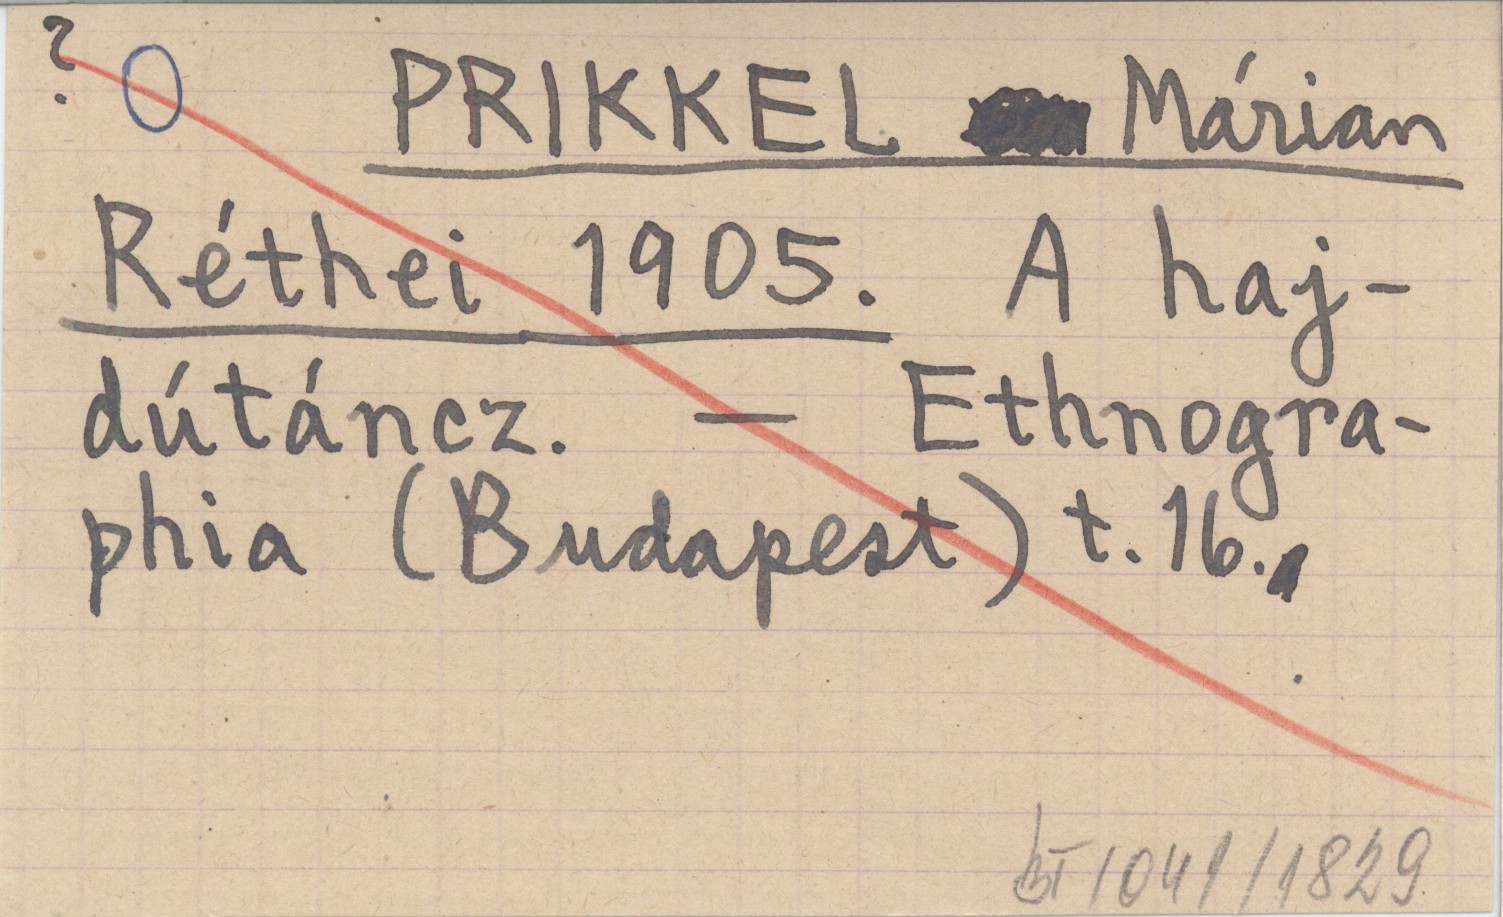 ? O PRIKKEL Márian
Réthei 1905. A haj-
dútáncz. — Ethnogra-
phia (Budapest) t. 16.
1041/1829